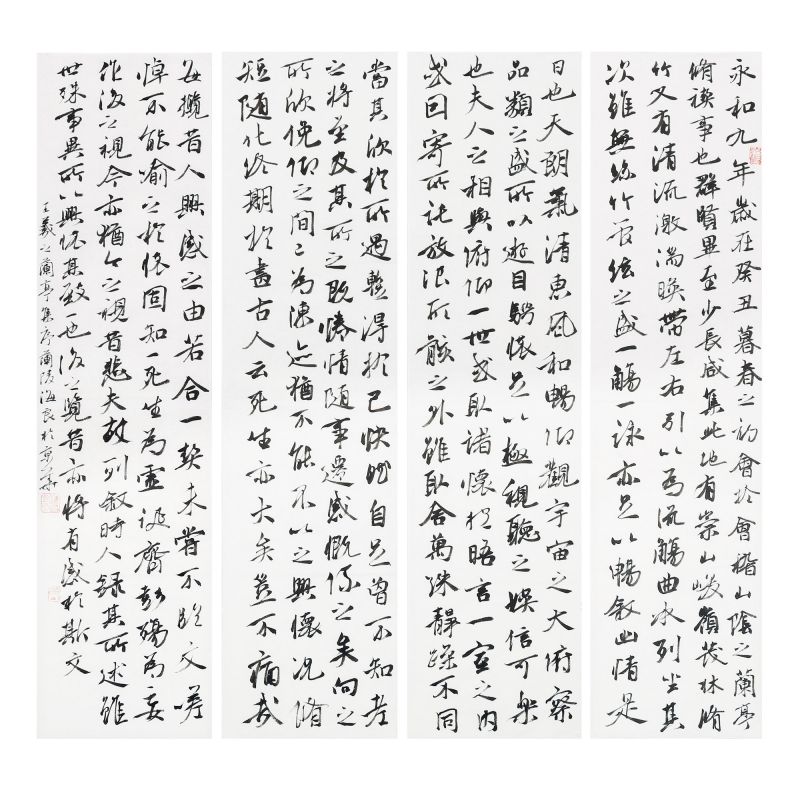 永和九年歲在癸丑暮春之初會於會稽山陰之蘭亭
脩禊事也群賢畢至少長咸集此地有崇山峻嶺茂林脩
竹又有清流激湍暎帶左右引以為流觴曲水列坐其
次雖無絲竹管弦之盛一觴一詠亦足以暢敘幽情是
日也天朗氣清惠風和暢仰觀宇宙之大俯察
品類之盛所以遊目騁懷足以極視聽之娛信可樂
也夫人之相與俯仰一世或取諸懷抱晤言一室之內
或因寄所託放浪形骸之外雖取舍萬殊靜躁不同
當其欣於所遇輒得於己快然自足曾不知老
之將至及其所之既惓情隨事遷感慨係之矣向之
所欣俛仰之間以為陳迹猶不能不以之興懷況脩
短隨化終期於盡古人云死生亦大矣豈不痛哉
每攬昔人興感之由若合一契未嘗不臨文嗟
悼不能喻之於懷固知一死生為虛誕齊彭殤為妄
作後之視今亦猶今之視昔悲夫故列敘時人錄其所述雖
世殊事異所以興懷其致一也後之覽者亦將有感於斯文
王羲之蘭亭集序蘭陵海良於京華